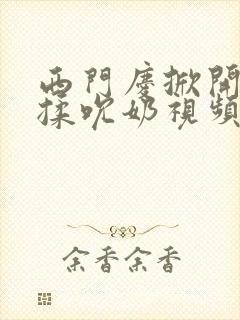 西門慶掀開
揉吮奶視頻
余香余香